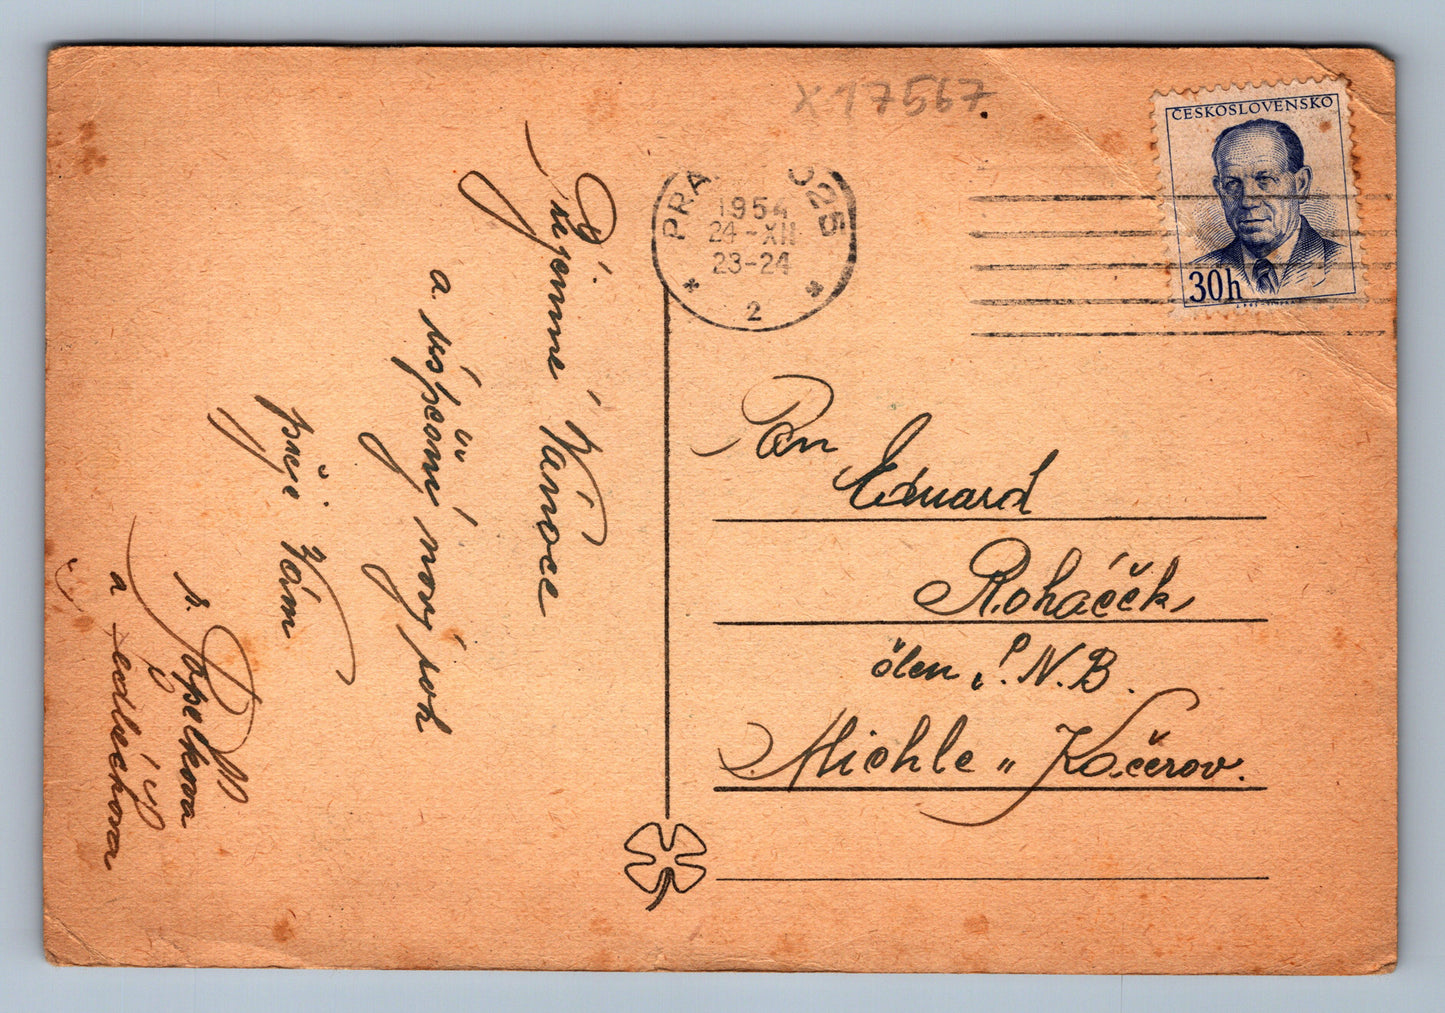 X 17567.
ČESKOSLOVENSKO
30h
PRAHA 025
1954
24-XII
23-24
2
Příjemné Vánoce
a úspěšný nový rok
přeje Vám
Popelkova
a Sedláčkova
Pan
Eduard
Roháček,
člen S.N.B.
Michle „ Kačerov.